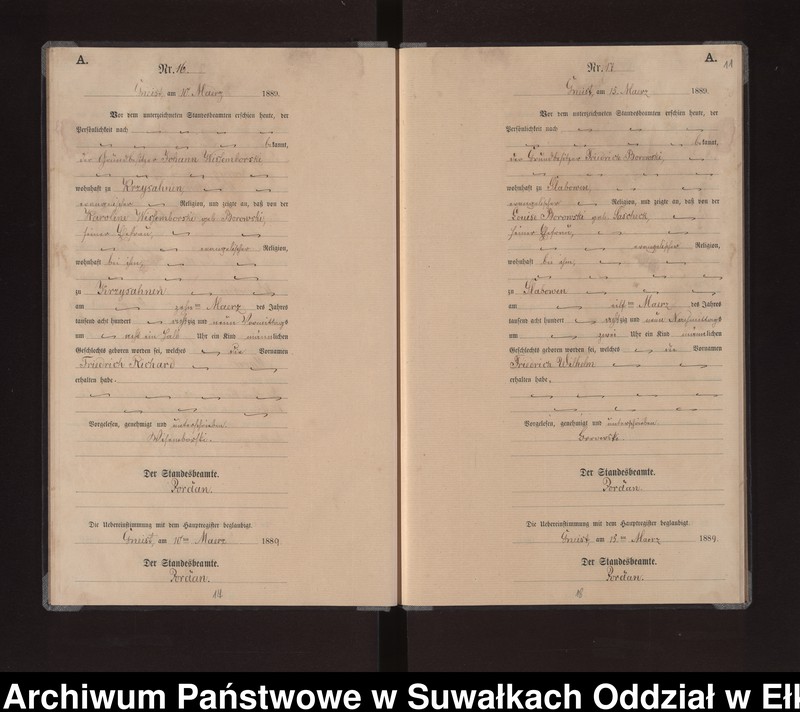 A.
Nr. 16.
Gneist, am 10ten Maerz 1889.
Vor dem unterzeichneten Standesbeamten erschien heute, der
Persönlichkeit nach
bekannt,
der Grundbesitzer Johann
wohnhaft zu Krzysahnen
evangelischer Religion, und zeigte an, daß von der
Karoline geb. Borowski,
seiner Ehefrau,
evangelischer Religion,
wohnhaft bei ihm,
zu Krzysahnen
am zehnten Maerz des Jahres
tausend acht hundert achtzig und neun Vormittags
um acht ein halb Uhr ein Kind männlichen
Geschlechts geboren worden sei, welches die Vornamen
Friedrich Richard
erhalten habe.
Vorgelesen, genehmigt und unterschrieben.
Der Standesbeamte.
Pordan.
Die Uebereinstimmung mit dem Hauptregister beglaubigt.
Gneist, am 10ten Maerz 1889.
Der Standesbeamte.
Pordan.
A.
11
Nr. 17.
Gneist, am 15. Maerz 1889.
Vor dem unterzeichneten Standesbeamten erschien heute, der
Persönlichkeit nach
bekannt,
der Grundbesitzer Friedrich Borowski,
wohnhaft zu Glabowen,
evangelischer Religion, und zeigte an, daß von der
Louise Borowski geb.
seiner Ehefrau,
evangelischer Religion,
wohnhaft bei ihm,
zu Glabowen
am elften Maerz des Jahres
tausend acht hundert achtzig und neun Nachmittags
um zwei Uhr ein Kind männlichen
Geschlechts geboren worden sei, welches die Vornamen
Friedrich Wilhelm
erhalten habe.
Vorgelesen, genehmigt und unterschrieben.
Borowski.
Der Standesbeamte.
Pordan.
Die Uebereinstimmung mit dem Hauptregister beglaubigt.
Gneist, am 15ten Maerz 1889.
Der Standesbeamte.
Pordan.
Archiwum Państwowe w Suwałkach Oddział w Ełk